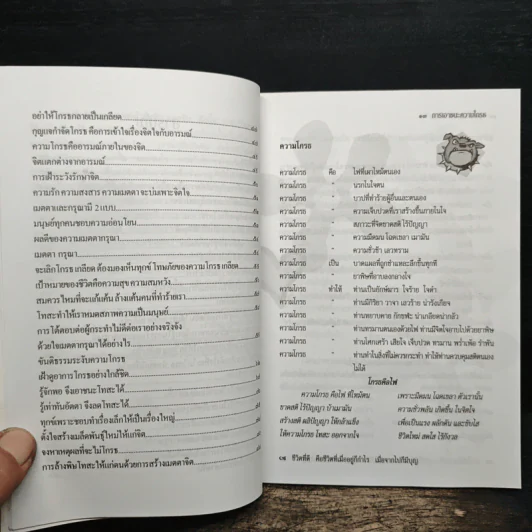 อย่าให้โกรธกลายเป็นเกลียด
กุญแจกำจัดโกรธ คือการเข้าใจเรื่องจิตใจกับอารมณ์
ความโกรธคืออารมณ์ภายในของจิต
จิตแตกต่างจากอารมณ์
การเฝ้าระวังรักษาจิต
ความรัก ความสงสาร ความเมตตา จะบ่มเพาะจิตใจ
เมตตาและกรุณามี 2 แบบ
มนุษย์ทุกคนชอบความอ่อนโยน
ผลดีของความเมตตากรุณา
เมตตา กรุณา
จะเลิกโกรธ เกลียด ต้องมองเห็นทุกข์ โทษภัยของความโกรธ เกลียด
เป้าหมายของชีวิตคือความสุข ความสมหวัง
สมควรไหมที่จะแก้แค้น ล้างแค้นคนที่ทำร้ายเรา
โทสะทำให้เราหมดสภาพความเป็นมนุษย์
การโต้ตอบต่อผู้กระทำไม่ดีต่อเราอย่างจริงจัง
ด้วยใจเมตตากรุณาได้อย่างไร
ขันติธรรมระงับความโกรธ
เฝ้าดูอาการโกรธอย่างใกล้ชิด
รู้จักพอ จึงเอาชนะโทสะได้
รู้เท่าทันอัตตา จึงลดโทสะได้
ทุกข์เพราะชอบทำเรื่องเล็กให้เป็นเรื่องใหญ่
ตั้งใจสร้างเมล็ดพันธุ์ใหม่ให้แก่จิต
จงหาเหตุผลที่จะไม่โกรธ
การล้างพิษโทสะให้แก่ตนด้วยการสร้างเมตตาจิต
๑๗ การเอาชนะความโกรธ
ความโกรธ
ความโกรธ คือ ไฟที่เผาไหม้ตนเอง
ความโกรธ " นรกในใจตน
ความโกรธ " บาปที่ทำร้ายผู้อื่นและตนเอง
ความโกรธ " ความเจ็บปวดที่เราสร้างขึ้นภายในใจ
ความโกรธ " สภาวะที่จิตขาดสติ ไร้ปัญญา
ความโกรธ " ความมืดมน โฉดเขลา เมามัน
ความโกรธ " ความชั่วช้า เลวทราม
ความโกรธ เป็น บาดแผลที่ถูกชำแหละลึกขึ้นทุกที
ความโกรธ " ยาพิษที่อาบลงกลางใจ
ความโกรธ ทำให้ ท่านเป็นยักษ์มาร ใจร้าย ใจดำ
ความโกรธ " ท่านมีกิริยา วาจา เลวร้าย น่ารังเกียจ
ความโกรธ " ท่านหยาบคาย กักขฬะ น่าเกลียดน่ากลัว
ความโกรธ " ท่านทรมานตนเองด้วยไฟ ท่านมีจิตใจอาบไปด้วยยาพิษ
ความโกรธ " ท่านโศกเศร้า เสียใจ เจ็บปวด ทรมาน พร่ำเพ้อ รำพัน
ความโกรธ " ท่านทำในสิ่งที่ไม่ควรกระทำ ทำให้ท่านควบคุมสติตนเอง
ไม่ได้
โกรธคือไฟ
ความโกรธ คือไฟ ที่โหมมืด เพราะมืดมน โฉดเขลา ตัวเรานั้น
ขาดสติ ไร้ปัญญา บ้าเมามัน ความชั่วพลัน เกิดขึ้น ในจิตใจ
สร้างสติ ผลิปัญญา ให้กล้าแข็ง เพื่อเป็นแรง ผลักดัน และขับไส
ให้ความโกรธ โทสะ ออกจากใจ ชีวิตใหม่ สดใส ไร้กังวล
ชีวิตที่ดี คือชีวิตที่เมื่ออยู่ก็กำไร เมื่อจากไปก็มีบุญ